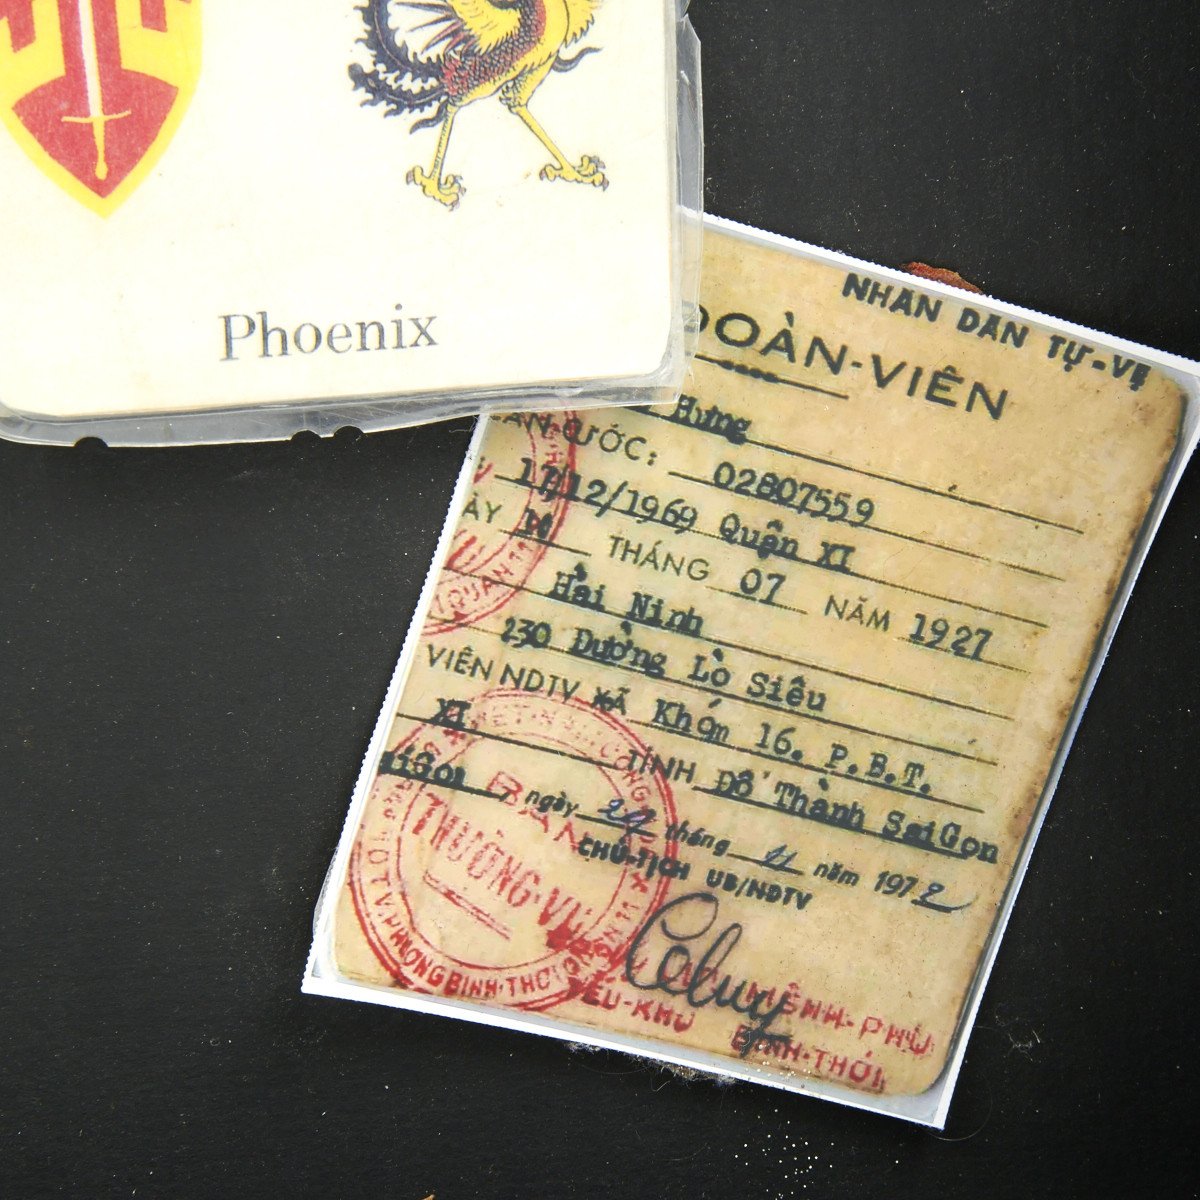 Phoenix
NHÂN DÂN TỰ-VỆ
ĐOÀN-VIÊN
Hưng
CƯỚC: 02807559
17/12/1969 Quận XI
THÁNG 07 NĂM 1927
Hải Ninh
230 Đường Lò Siêu
VIÊN NDTV XÃ Khóm 16. P.B.T.
XI TỈNH Đô Thành SaiGon
SaiGon, ngày 29 tháng 11 năm 1972
CHỦ-TỊCH UB/NDTV
QUẬN 11
BAN
THƯỜNG-VỤ
PHƯỜNG BÌNH-THỚI
YẾU-KHU
MỆNH-PHÙ
BÌNH-THỚI